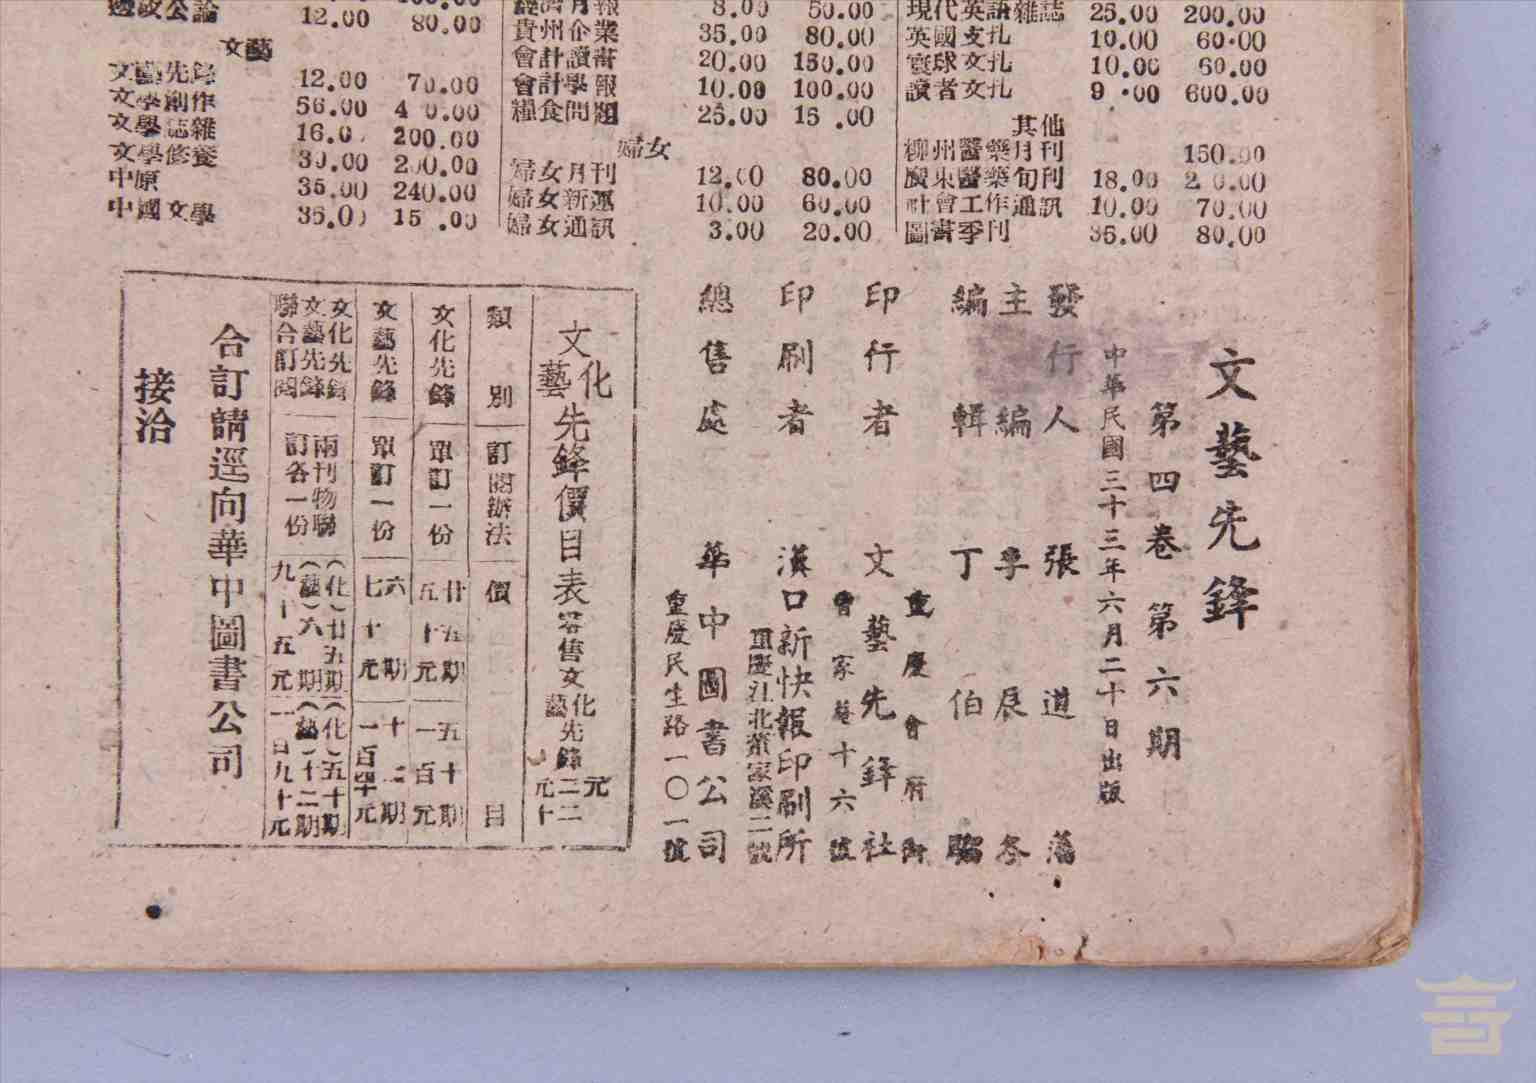 12.00 80.00
文藝
文藝先鋒 12.00 70.00
文學創作 56.00
文學雜誌 200.00
文學修養 30.00 200.00
中原 35.00 240.00
中國文學
8.00 50.00
貴州企業 35.00 80.00
會計讀書 20.00 150.00
會計學報 10.00 100.00
糧食問題 25.00
婦女
婦女月刊 80.00
婦女新運 10.00 60.00
婦女通訊 3.00 20.00
現代英語雜誌 25.00 200.00
英國文扎 10.00 60.00
寰球文扎 10.00 60.00
讀者文扎 600.00
其他
柳州醫藥月刊 150.00
廣東醫藥旬刊 18.00
社會工作通訊 10.00 70.00
圖書季刊 35.00 80.00
文藝先鋒
第四卷 第六期
中華民國三十三年六月二十日出版
發行人 張道藩
主編 李辰冬
編輯 丁伯騮
印行者 文藝先鋒社
重慶會府街
曹家巷十六號
印刷者 漢口新快報印刷所
重慶江北董家溪二號
總售處 華中圖書公司
重慶民生路一〇一號
文化
藝
先鋒價目表零售文化
藝
先鋒
元
二十
類別 訂閱辦法 價目
文化先鋒 單訂一份 廿五期 五十元 五十期 一百元
文藝先鋒 單訂一份 六期 七十元 十二期 一百四十元
文化先鋒
文藝先鋒
聯合訂閱 兩刊物聯訂各一份 (化)廿五期
(藝)六期
九十五元 (化)五十期
(藝)十二期
一百九十元
合訂請逕向華中圖書公司
接洽